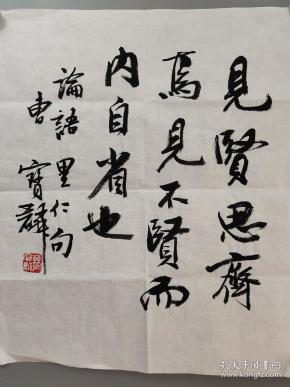 見賢思齊
焉見不賢而
內自省也
論語 里仁句
曹寶麟
孔夫子旧书网